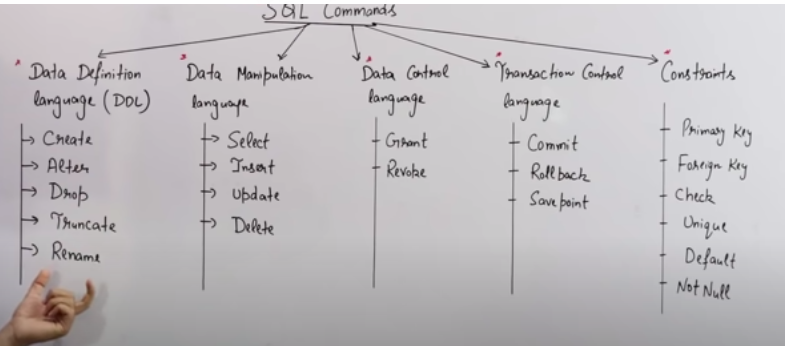 SQL Commands
Data Definition
language (DDL)
Create
Alter
Drop
Truncate
Rename
Data Manipulation
language
Select
Insert
Update
Delete
Data Control
language
Grant
Revoke
Transaction Control
language
Commit
Rollback
Savepoint
Constraints
Primary Key
Foreign Key
Check
Unique
Default
Not Null